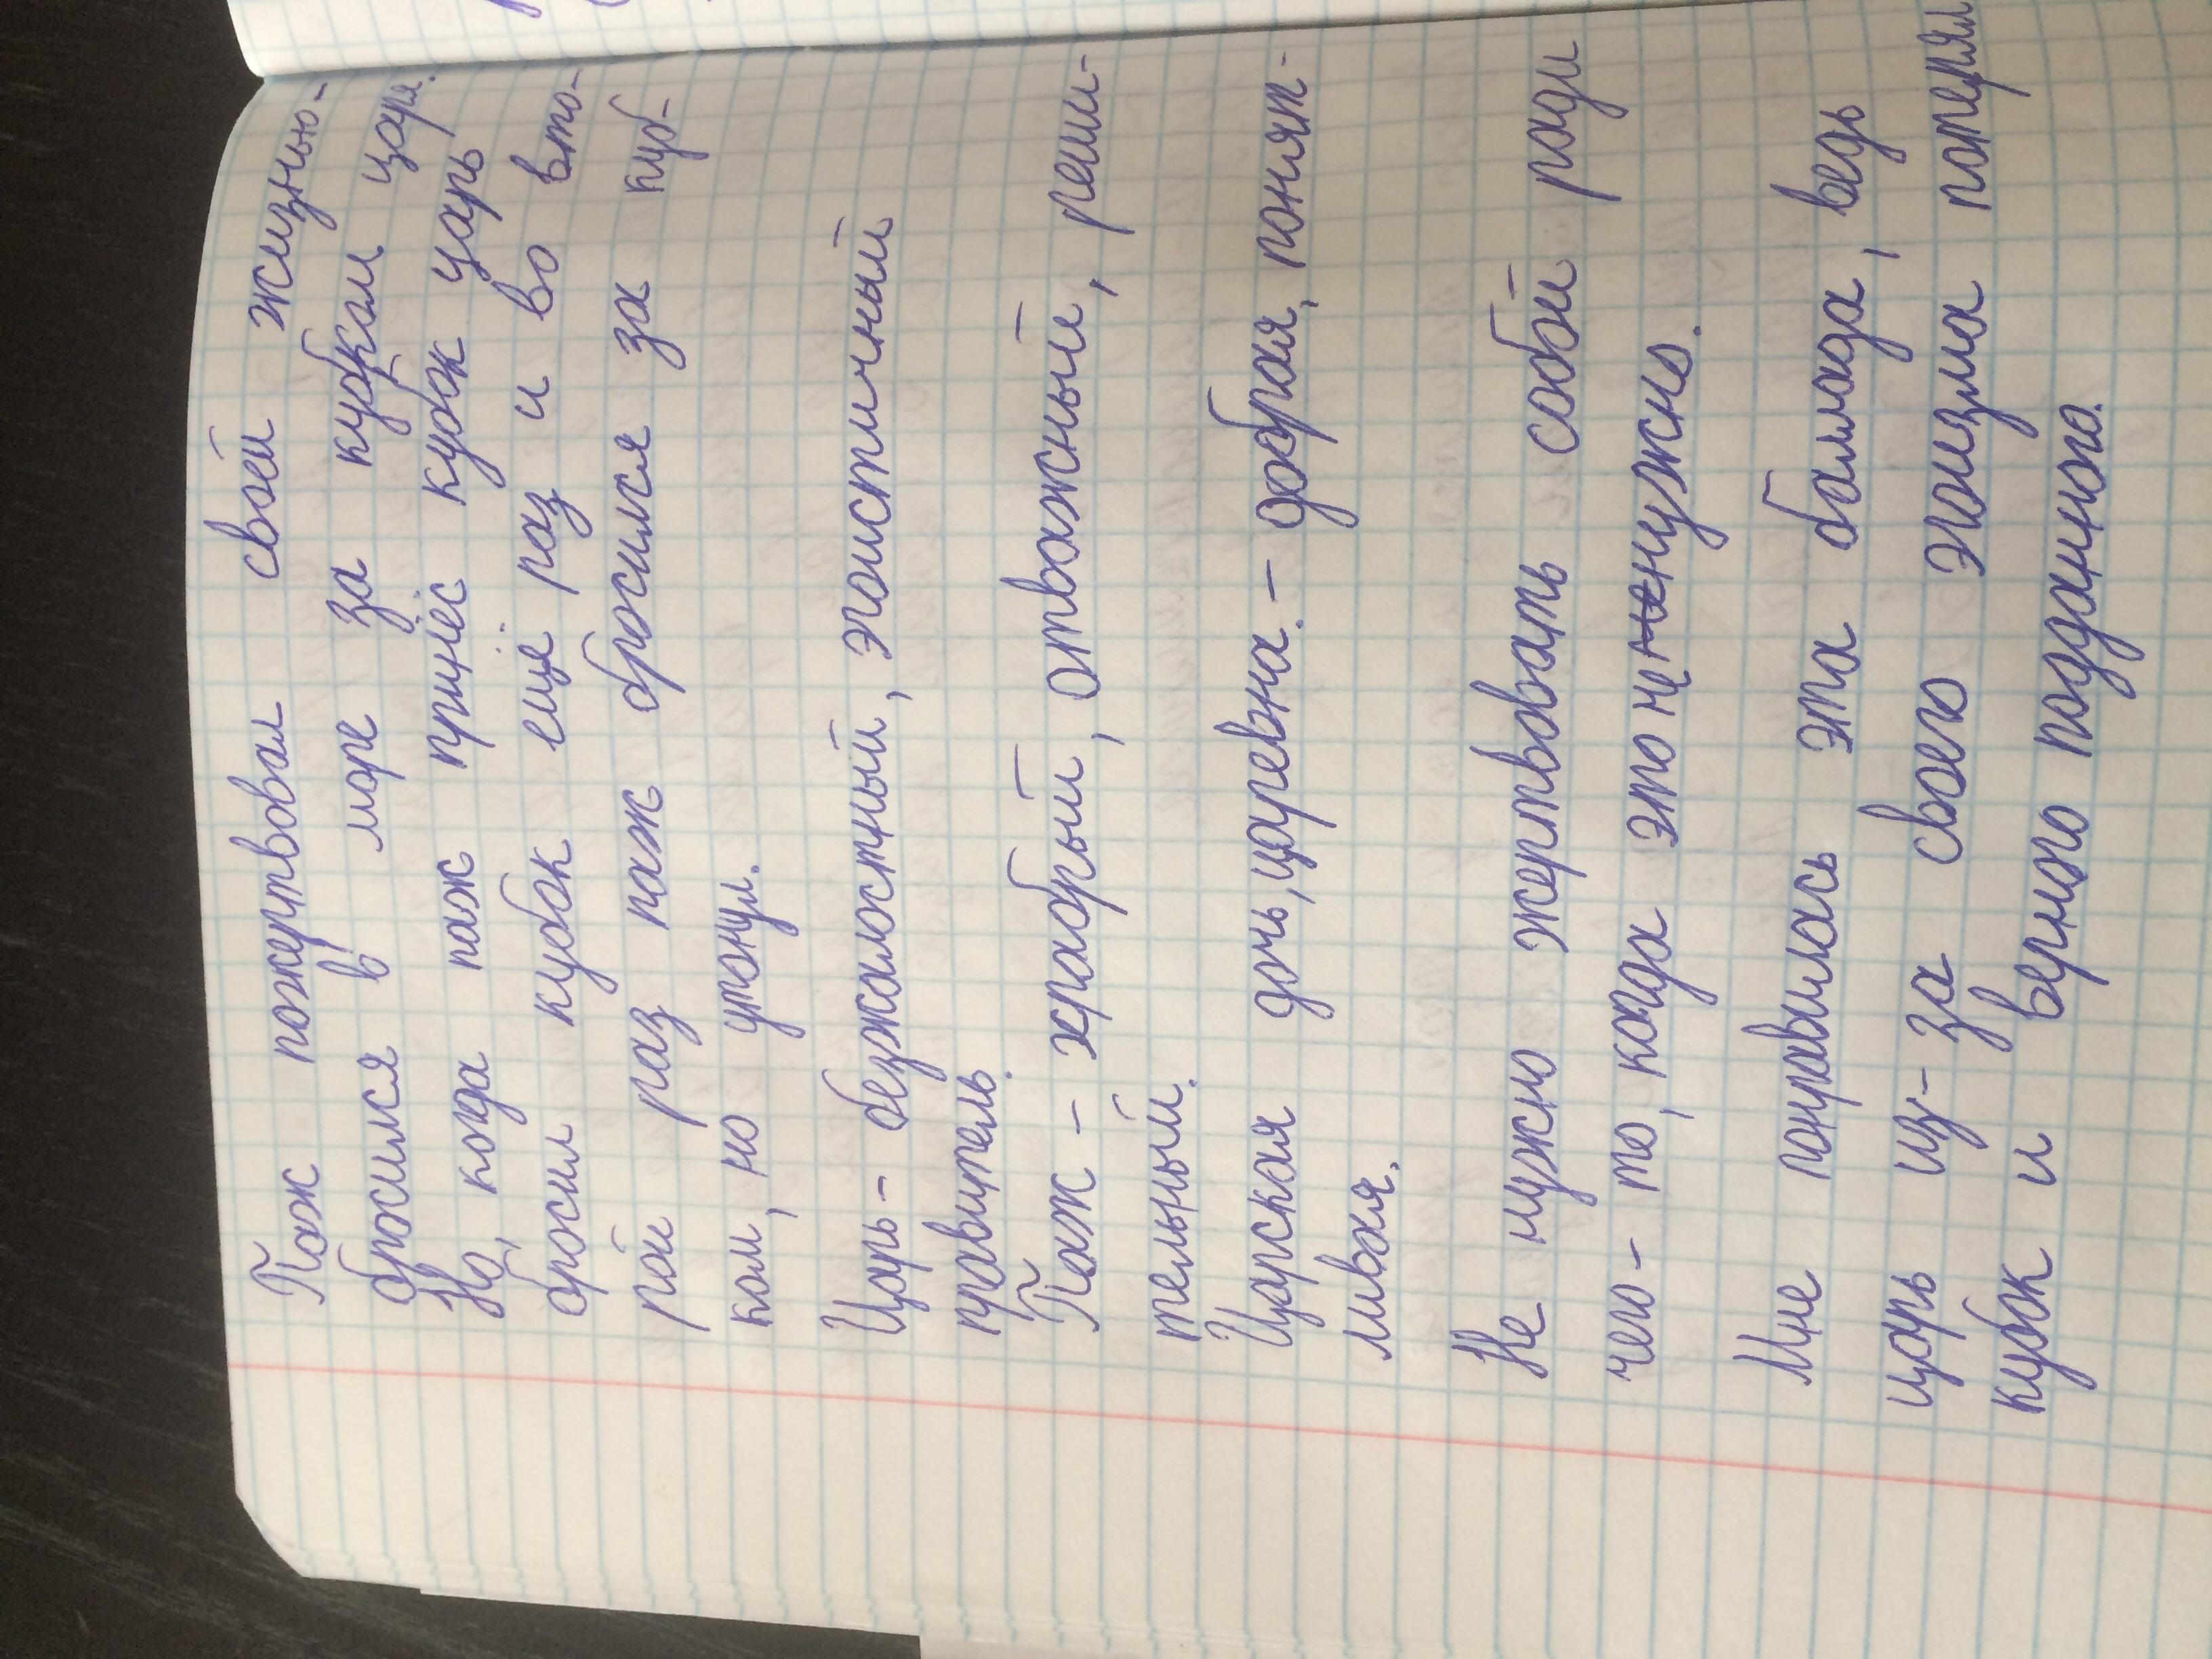 Паж пожертвовал своей жизнью-
бросился в море за кубком царя.
Но, когда паж принёс кубок царь
бросил кубок ещё раз и во вто-
рой раз паж бросился за куб-
ком, но утонул.
Царь- безжалостный, эгоистичный
правитель.
Паж - храбрый, отважный, реши-
тельный.
Царская дочь, царевна. - добрая, понят-
ливая.
Не нужно жертвовать собой ради
чего-то, когда это не нужно.
Мне понравилась эта баллада, ведь
царь из-за своего эгоизма потерял
кубок и верного подданного.